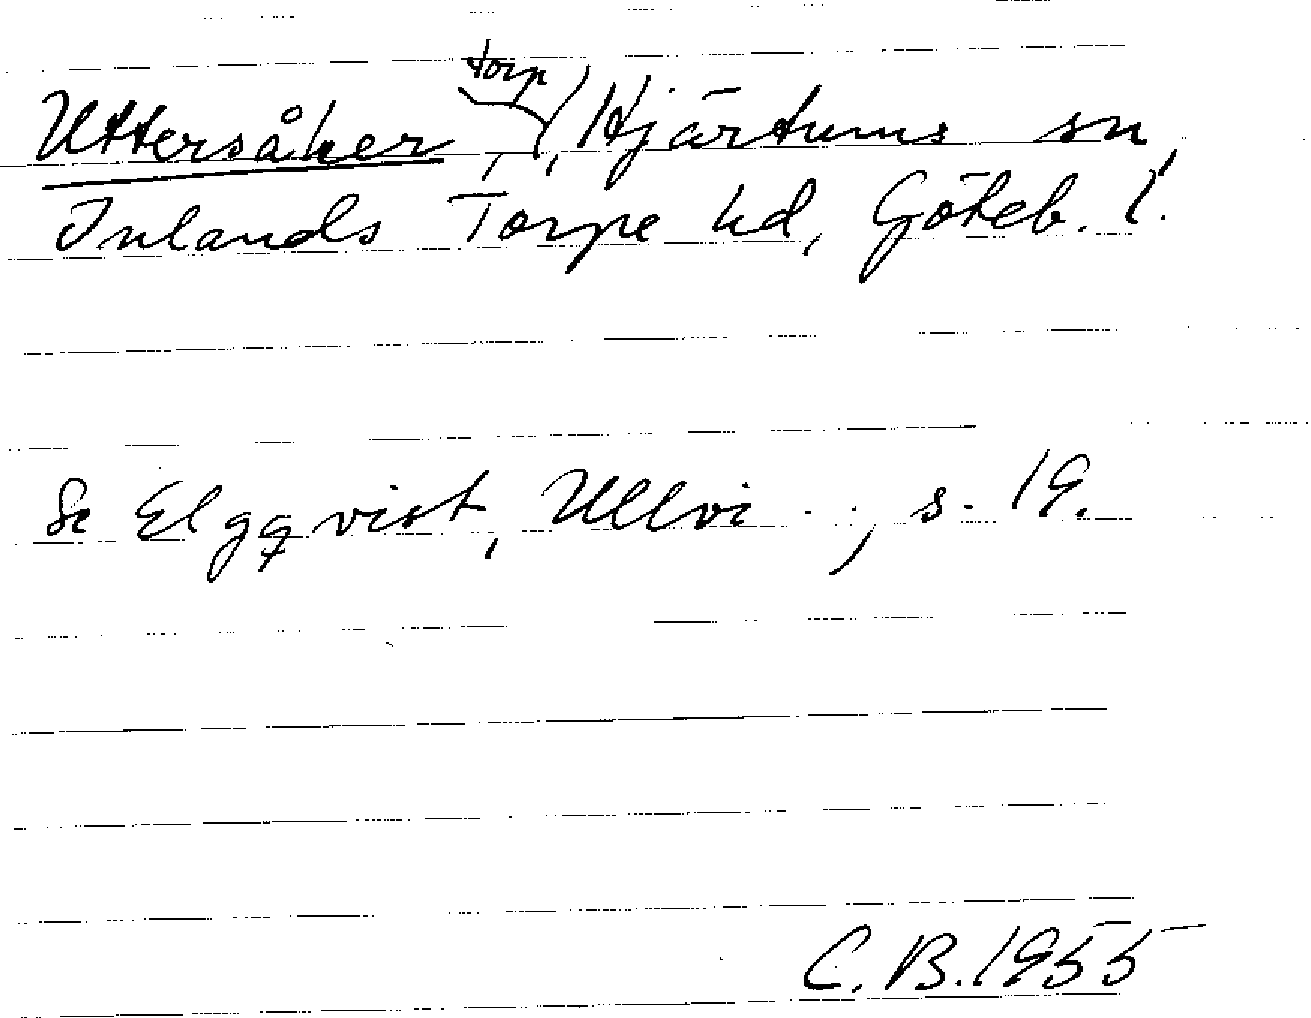 Uttersåker, torp, Hjärtums sn,
Inlands Torpe hd, Göteb. l.
Se Elgqvist, Ullvi . ., s. 19.
C. B. 1955